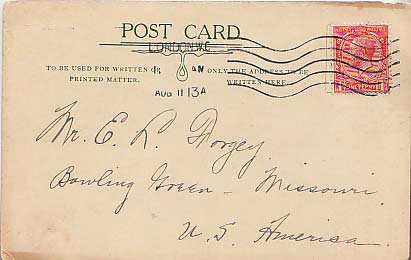 POST CARD
LONDON.W.C.
TO BE USED FOR WRITTEN OR
PRINTED MATTER.
ONLY THE ADDRESS TO BE
WRITTEN HERE.
AUG 11 13A
Mr. E. L. Forgey
Bowling Green - Missouri.
U. S. America.